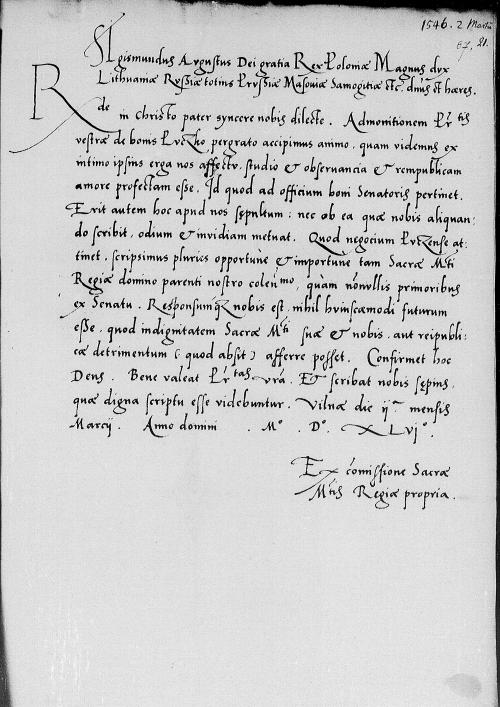 1546. 2 Martii
67, 21.
SIgismundus Augustus Dei gratia Rex Poloniæ Magnus dux
Lithuaniæ Russiæ totius Prussiæ Masoviæ Samogitiæ etc. dñus et hæres.
Rde in christo pater syncere nobis dilecte. Admonitionem Prtis
vestræ de bonis Puczko, pergrato accipimus animo, quam videmus ex
intimo ipsius erga nos affectu, studio & observancia & rempublicam
amore profectam esse. Id quod ad officium boni Senatoris pertinet.
Erit autem hoc apud nos sępultum: nec ob ea quæ nobis aliquan:
do scribit, odium & invidiam metuat. Quod negocium Putzense at:
tinet, scripsimus pluries opportune & importune tam Sacræ Mti
Regiæ domino parenti nostro colenmo, quam nonnullis primoribus
ex Senatu. Responsumq; nobis est, nihil huiuscæmodi futurum
esse, quod indignitatem Sacræ Mti suæ & nobis, aut reipubli:
cæ detrimentum (quod absit) afferre posset. Confirmet hoc
Deus. Bene valeat Prtas vrã. Et scribat nobis sępius,
quæ digna scriptu esse videbuntur. Vilnæ die ija mensis
Marcij. Anno domini . Mo . Do. XLVJo.
Ex cõmissione Sacræ
Mtis Regiæ propria.